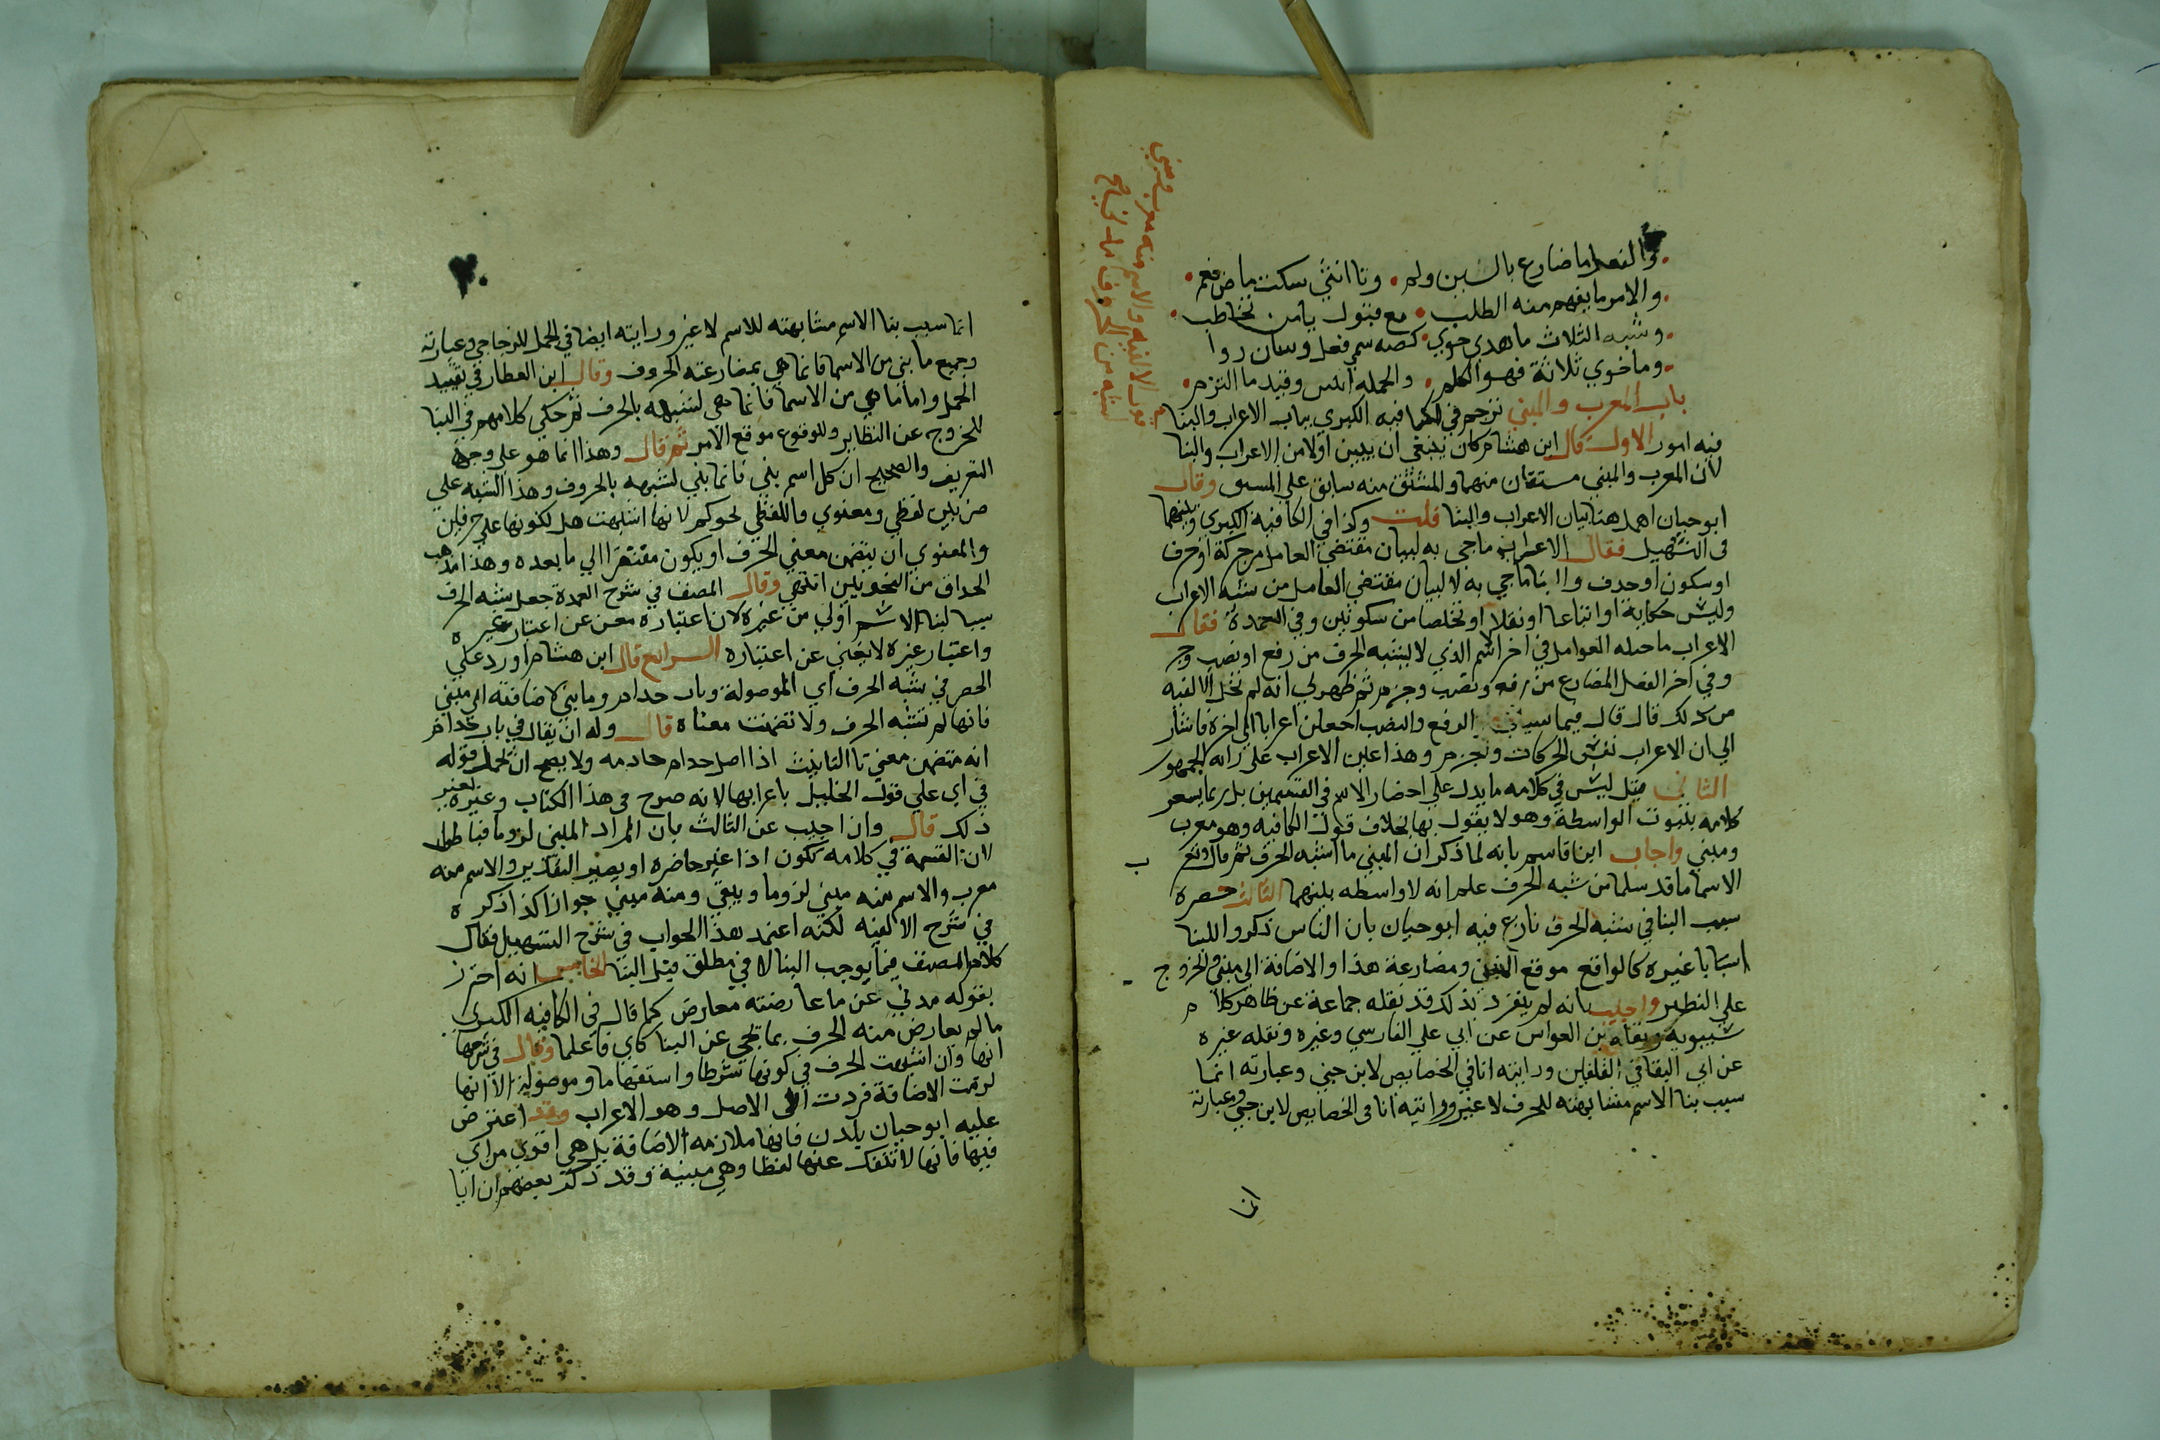 والفعل ما ضارع بالسين ولم • وتا انثي سكنت ماض فعم •
• والامر ما يفهم منه الطلب • مع قبول يا من تخاطب •
• وشبه الثلاث ما هدي حوي • كصه سم فعل وسان روا
• وما حوي ثلاثة فهو الكلم • والجمله اسس وقيد ما التزم •
باب المعرب والمبني ترجم في الكافيه الكبري بباب الاعراب والبنا
فيه امور الاول قال ابن هشام كان ينبغي ان يبين اولا من الاعراب والبنا
لان المعرب والمبني مستقان منهما والمشتق منه سابق علي المسق وقال
ابو حيان اهمل هنا بيان الاعراب والبنا قلت وكذا في الكافية الكبري وبينهما
في التسهيل فقال الاعراب ما جي به لبيان مقتضي العامل من حركة او حرف
او سكون او حدف والبنا ما جي به لا لبيان مقتضي العامل من شبه الاعراب
وليس حكاية او اتباعا او نقلا او تخلصا من سكونين وفي العمدة فقال
الاعراب ما جلبه العوامل في اخر الاسم الذي لا يشبه الحرف من رفع او نصب وجر
وفي اخر الفعل المضارع من رفع ونصب وجزم ثم ظهر لي انه لم تخل الالفيه
من ذلك قال قال فيما سياتي الرفع والنصب اجعلن اعرابا الي اخره فاشار
الي ان الاعراب نفس الحركات ونجزم وهذا عين الاعراب علي راية الجمهور
الثاني قيل ليس في كلامه ما يدل علي احضار الاسم في القسمين بل ربما يسعر
كلامه بثبوت الواسطة وهو لا يقول بها بخلاف قوله الكافيه وهو معرب
ومبني واجاب ابن قاسم بانه لما ذكر ان المبني ما اشبه الحرف ثم قال ومع ب
الاسما ما قد سلما من شبه الحرف علم انه لا واسطه بينهما الثالث حصره
سبب البنا في شبه الحرف نازع فيه ابو حيان بان الناس ذكروا للبنا
اسبابا غيره كالواقع موقع المبني ومضارعة هذا والاضافة الي مبني والخروج
علي النظير واجيب بانه لم ينفرد بذلك فقد نقله جماعة عن ظاهر كلام
سيبويه ونقله بن العواس عن ابي علي الفارسي وغيره ونقله غيره
عن ابي البقا في الفلفلين ورايته انا في الخصايص لابن جني وعبارته انما
سبب بنا الاسم مشابهته للحرف لا غير ورايته انا في الخصايص لابن جني وعبارته
انما
قول الالفيه والاسم منه معرب ومبني
لشبه من الحروف
انما سبب بنا الاسم مشابهته للاسم لا غير ورايته ايضا في الجمل للزجاجي وعبارته
وجميع ما بني من الاسما فانما هي بمضارعته الحروف وقال ابن العطار في تقييد
الجمل واما ما بني من الاسما فانما هي لتشبهه بالحرف ثم حكي كلامهم في البنا
للخروج عن النظاير وللوقوع موقع الامر ثم قال وهذا انما هو علي وجهة
التعريف والصحيح ان كل اسم بني فانما بني لشبهه بالحروف وهذا الشبه علي
ضربين لفظي ومعنوي فاللفظي نحو كم لانها اشبهت هل لكونها علي حرفين
والمعنوي ان يتضمن معني الحرف او يكون مفتقرا الي ما بعده وهذا مذهب
الحداق من النحويين انتهي وقال المصنف في شرح العمدة جعل شبه الحرف
سببا لبنا الاسم اولي من غيره لان اعتباره مغن عن اعتبار غيره
واعتبار غيره لا يغني عن اعتباره الرابع قال ابن هشام اورد علي
الحصر في شبه الحرف اي الموصولة وباب حدام وما بني لاضافته الي مبني
فانها لم تشبه الحرف ولا تضمنت معناه قال وله ان يقال في باب حدام
انه متضمن معني تا التانيث اذا اصل حدام حادمه ولا يصح ان تحمل قوله
في اي علي قول الخليل باعرابها لانه صرح في هذا الكتاب وغيره بغير
ذلك قال وان اجيب عن الثالث بان المراد المبني لزوما فباطل
لان القسمة في كلامه تكون اذا غير حاضره او يصير التقدير والاسم منه
معرب والاسم منه مبني لزوما ويبقي ومنه مبني جوازا كذا ذكره
في شرح الالفيه لكنه اعتمد هذا الجواب في شرح التسهيل فقال
كلام المصنف فيما يوجب البنا لا في مطلق قبل البنا الخامس انه احترز
بقوله مدني عن ما عارضه معارض كما قال في الكافيه الكبري
ما لم يعارض شبه الحرف بما تجي عن البنا كاي فاعلما وقال في شرحها
انها وان اشبهت الحرف في كونها شرطا واستفهاما وموصولة الا انها
لزمت الاضافة فردت الي الاصل وهو الاعراب وقد اعترض
عليه ابو حيان بلدن فانها ملازمه الاضافة بل هي اقوي من اي
فيها فانها لا تنفك عنها لفظا وهي مبنية وقد ذكر بعضهم ان ايا